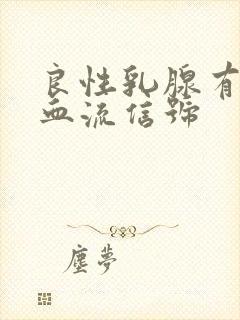 良性乳腺有
血流信號
塵夢